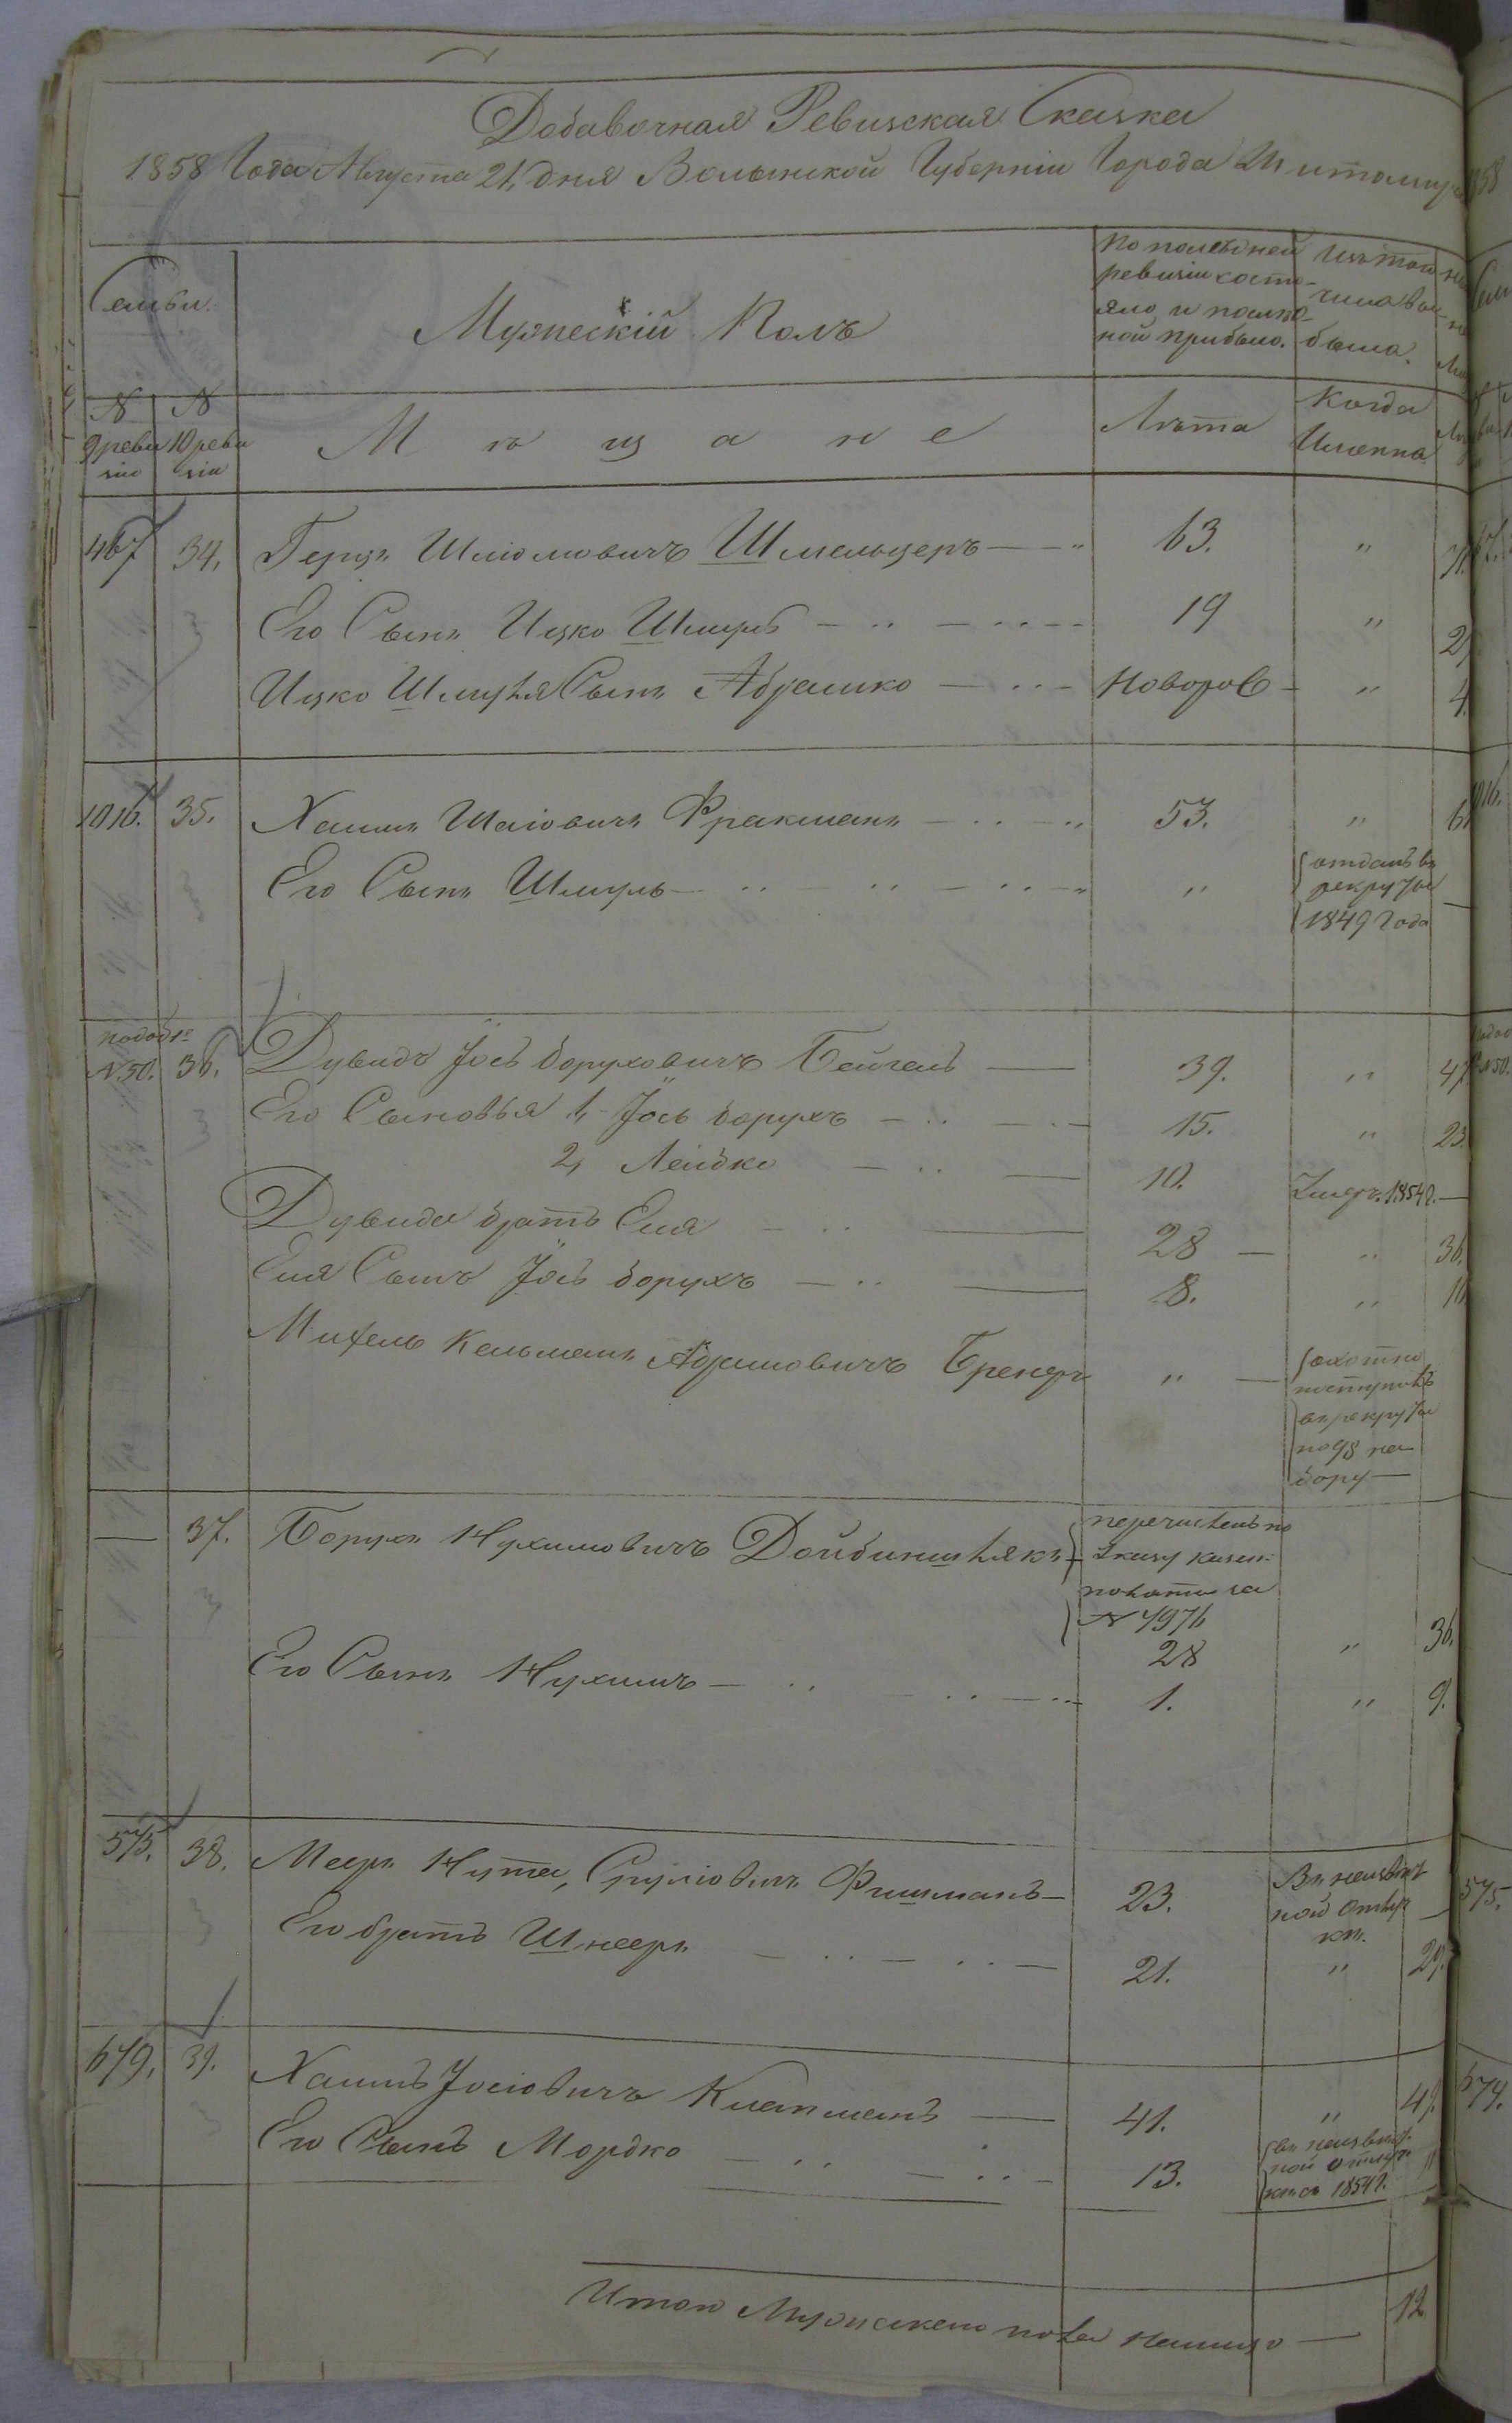 Добавочная Ревизская Сказка
1858 Года Августа 21 дня Волынской Губерніи Города Житомира
Семьи.
Мужескій Полъ
По последней ревизіи состояло и после ной прибыло.
Изъ того числа выбыло.
N 9 ревизіи
N 10 ревизіи
Мѣщане
Лѣта
Когда Именно
467 34. Герцъ Шліомовичъ Шмельцеръ — " 63. "
Его Сынъ Ицко Шмуль 19 " 2
Ицко Шмуля Сынъ Абрамко — Новорож — " 4
1016. 35. Хаимъ Шаіовичъ Фракманъ — 53. " 61
Его Сынъ Шмуль — " отданъ въ рекруты 1849 года —
подоб. N. 50. 36. Дувидъ Іось Боруховичъ Бейгель — 39. " 47
Его Сыновья 1, Іось Борухъ — 15. " 23
2, Лейбко — 10. Умеръ. 1854 г. —
Дувида братъ Еля — 28 — " 36.
Еля Сынъ Іось Борухъ — 8. "
Михель Кельманъ Абрамовичъ — " — охотно поступилъ въ рекруты по 98 набору —
— 37. Борухъ Нухимовичъ — перечисленъ по Указу Казен: палаты за N 4976
28 " 36.
Его Сынъ Нухимъ — 1. " 9.
575. 38. Мееръ Нута, Сруліовичъ Фишманъ — 23. Въ неизвѣстной отлучкѣ. —
Его братъ Шнееръ — 21. " 29.
679. 39. Хаимъ Іосіовичъ Клепманъ — 41. " 49.
Его Сынъ Мордко — 13. въ неизвѣстной отлучкѣ съ 1854 г.
Итого Мужескаго пола налицо — 12